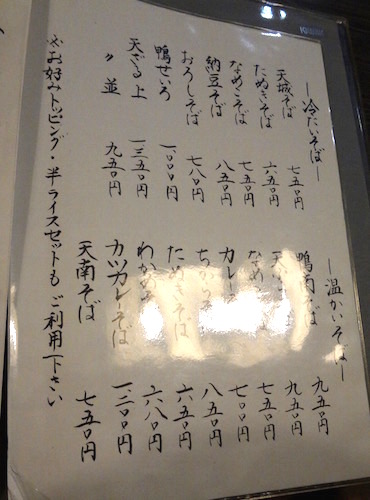 ー冷たいそばー
天城そば 七五〇円
たぬきそば 六五〇円
なめこそば 七五〇円
納豆そば 八五〇円
おろしそば 七八〇円
鴨せいろ 一〇〇〇円
天ざる 上 一三五〇円
〃 並 九五〇円
ー温かいそばー
鴨南そば 九五〇円
九五〇円
なめこ 七五〇円
カレー 七〇〇円
ちから 八五〇円
たぬきそば 六五〇円
わかめ 六八〇円
カツカレーそば
天南そば 七五〇円
※お好みトッピング・半ライスセットもご利用下さい